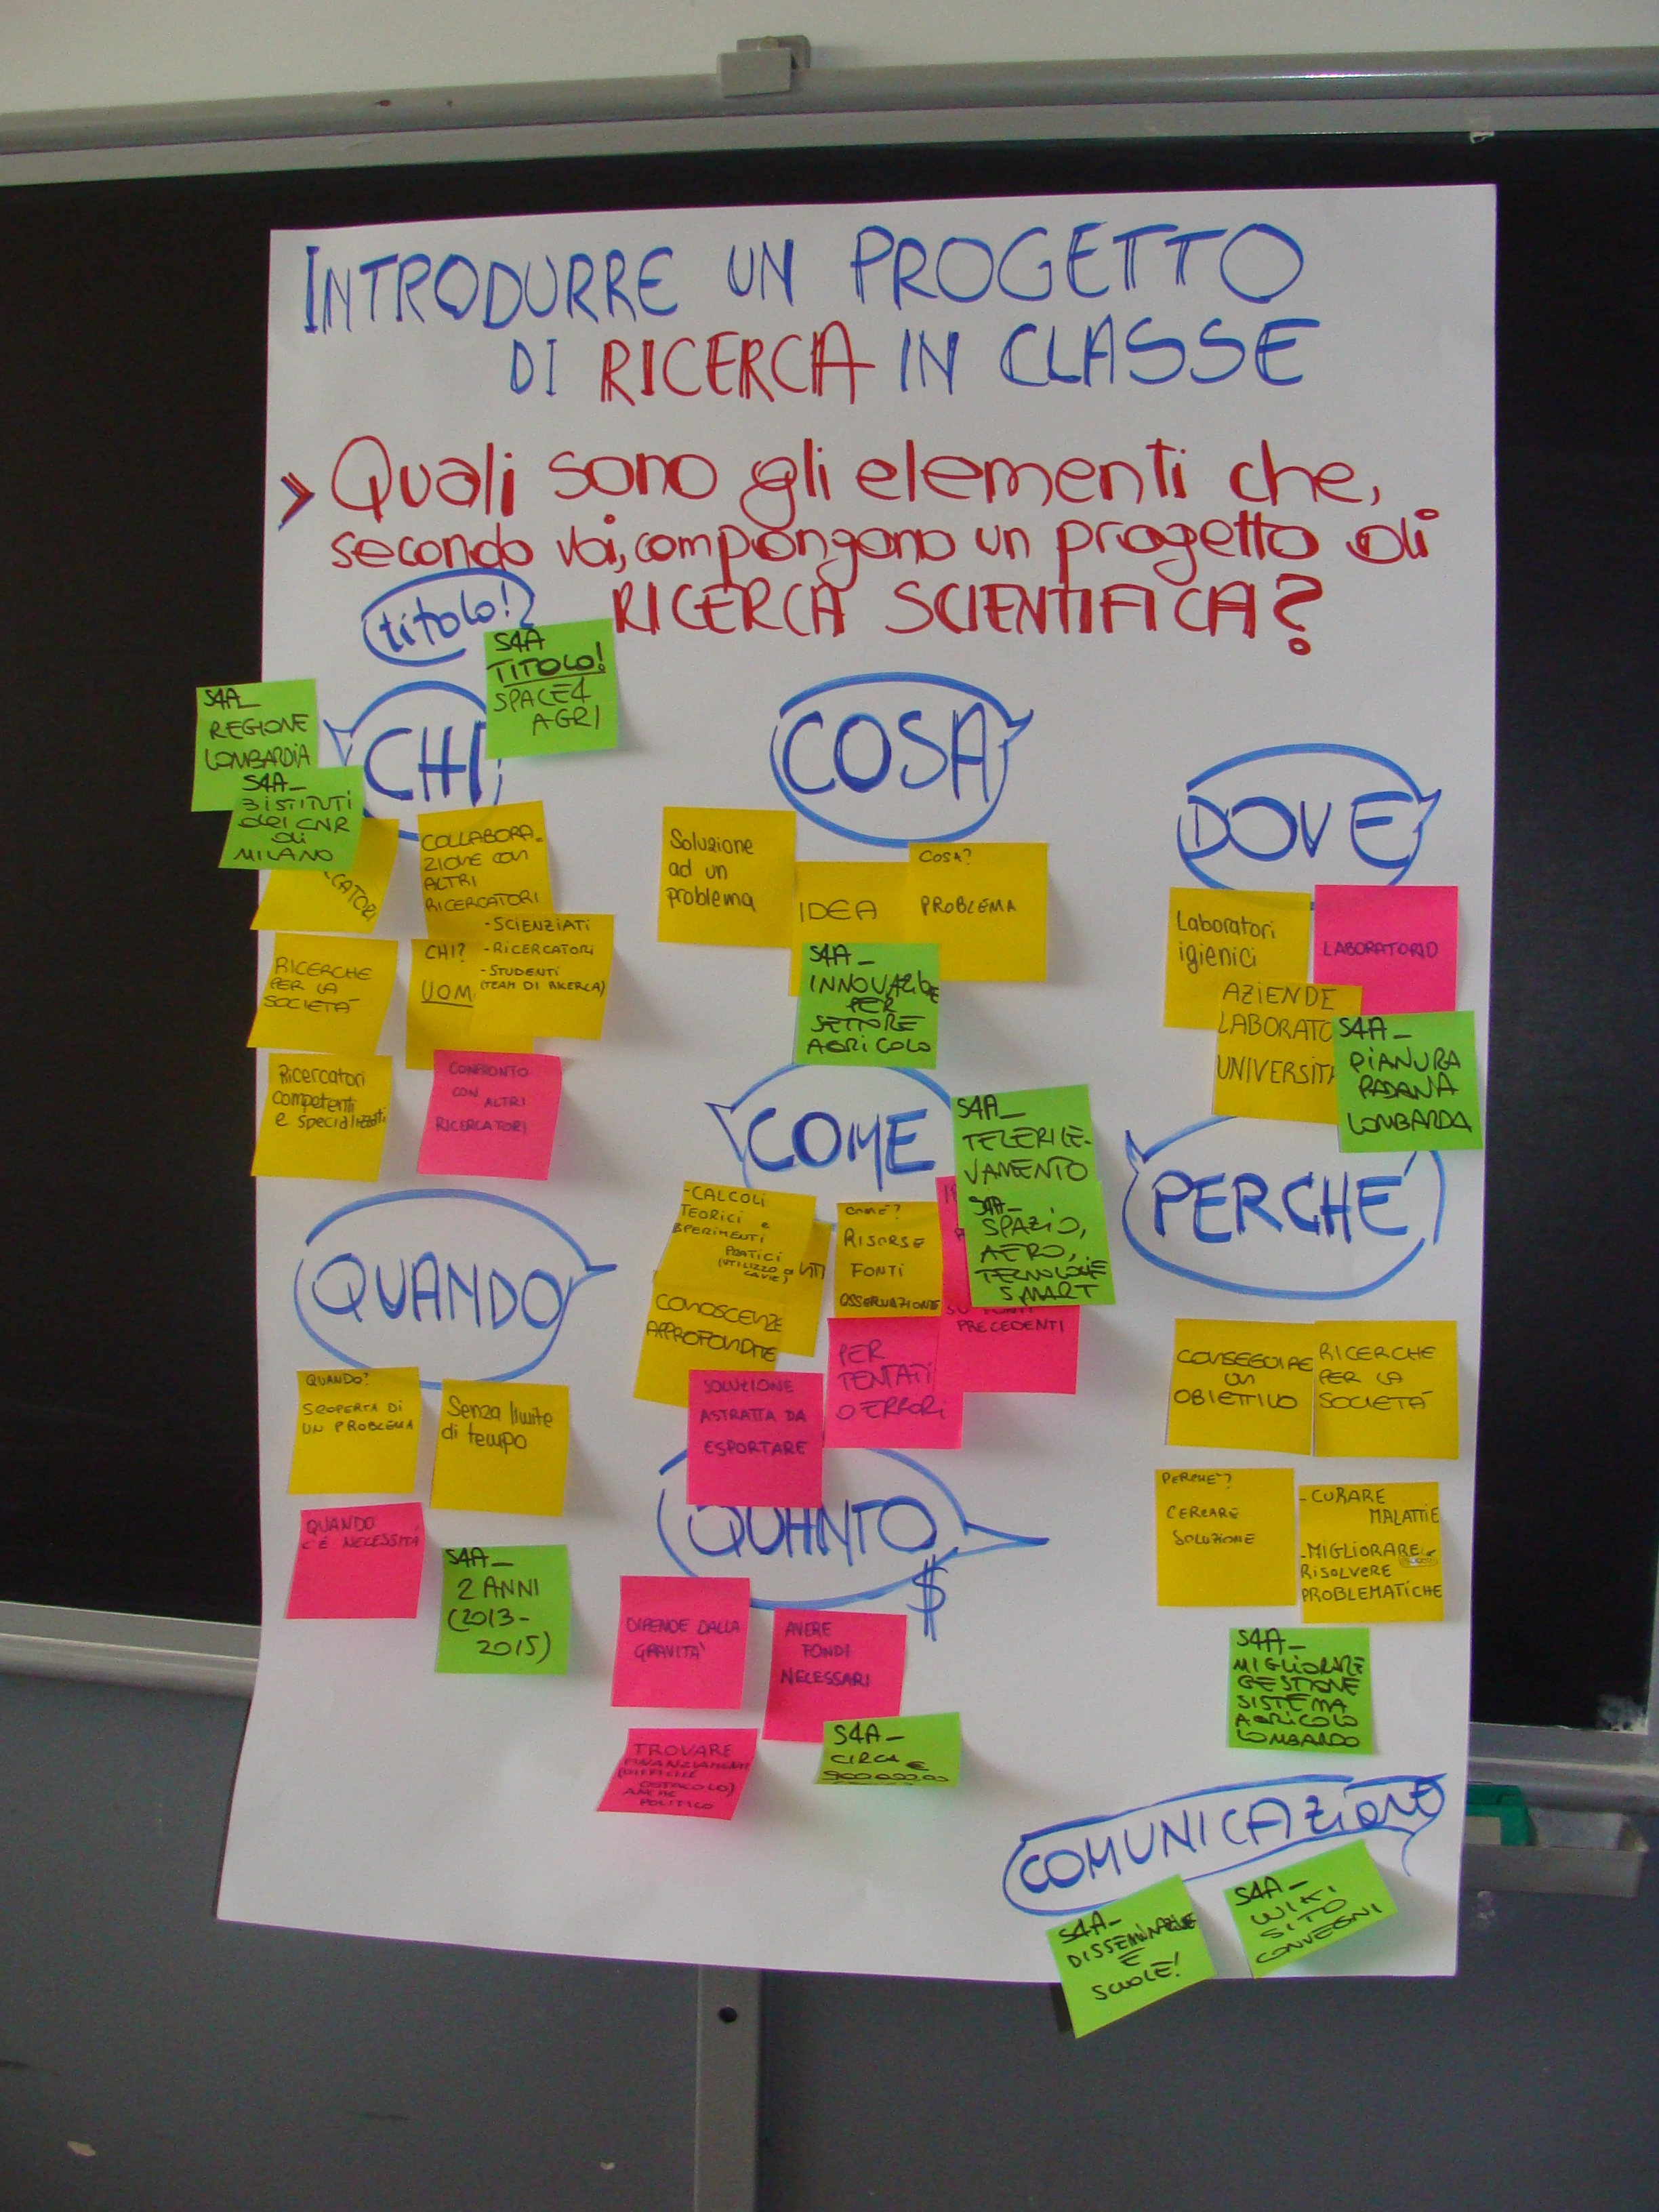 INTRODURRE UN PROGETTO
DI RICERCA IN CLASSE
> Quali sono gli elementi che,
secondo voi, compongono un progetto di
RICERCA SCIENTIFICA?
titolo!
S4A
TITOLO!
SPACE4
AGRI
CHI
S4A_
REGIONE
LOMBARDIA
S4A_
3 ISTITUTI
del CNR
di
MILANO
COLLABORA-
ZIONE CON
ALTRI
RICERCATORI
RICERCHE
PER LA
SOCIETÀ
CHI?
UOM
-SCIENZIATI
-RICERCATORI
-STUDENTI
(TEAM DI RICERCA)
Ricercatori
competenti
e specializzati
CONFRONTO
CON ALTRI
RICERCATORI
COSA
Soluzione
ad un
problema
IDEA
COSA?
PROBLEMA
S4A_
INNOVAZIONE
PER
SETTORE
AGRICOLO
DOVE
Laboratori
igienici
LABORATORIO
AZIENDE
LABORATO
UNIVERSITÀ
S4A_
PIANURA
PADANA
LOMBARDA
COME
S4A_
TELERILE-
VAMENTO
S4A_
SPAZIO,
AERO,
TECNOLOGIE
SMART
-CALCOLI
TEORICI e
SPERIMENTI
PRATICI
(UTILIZZO di
CAVIE)
CONOSCENZE
APPROFONDITE
COME?
RISORSE
FONTI
OSSERVAZIONE
SU FONTI
PRECEDENTI
PER
TENTATI
O ERRORI
SOLUZIONE
ASTRATTA DA
ESPORTARE
PERCHÉ
CONSEGUIRE
UN
OBIETTIVO
RICERCHE
PER LA
SOCIETÀ
PERCHE'?
CERCARE
SOLUZIONE
-CURARE
MALATTIE
-MIGLIORARE
RISOLVERE
PROBLEMATICHE
S4A_
MIGLIORARE
GESTIONE
SISTEMA
AGRICOLO
LOMBARDO
QUANDO
QUANDO?
SCOPERTA DI
UN PROBLEMA
Senza limite
di tempo
QUANDO
C'È NECESSITÀ
S4A_
2 ANNI
(2013-
2015)
QUANTO
$
DIPENDE DALLA
GRAVITA'
AVERE
FONDI
NECESSARI
TROVARE
FINANZIAMENTI
(DIFFICILE
OSTACOLO)
ANCHE
POLITICO
S4A_
CIRCA €
900.000,00
COMUNICAZIONE
S4A_
DISSEMINAZIONE
E
SCUOLE!
S4A_
WIKI
SITO
CONVEGNI